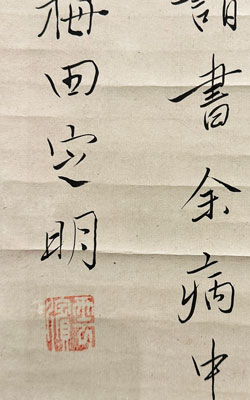 書余病中
梅田定明